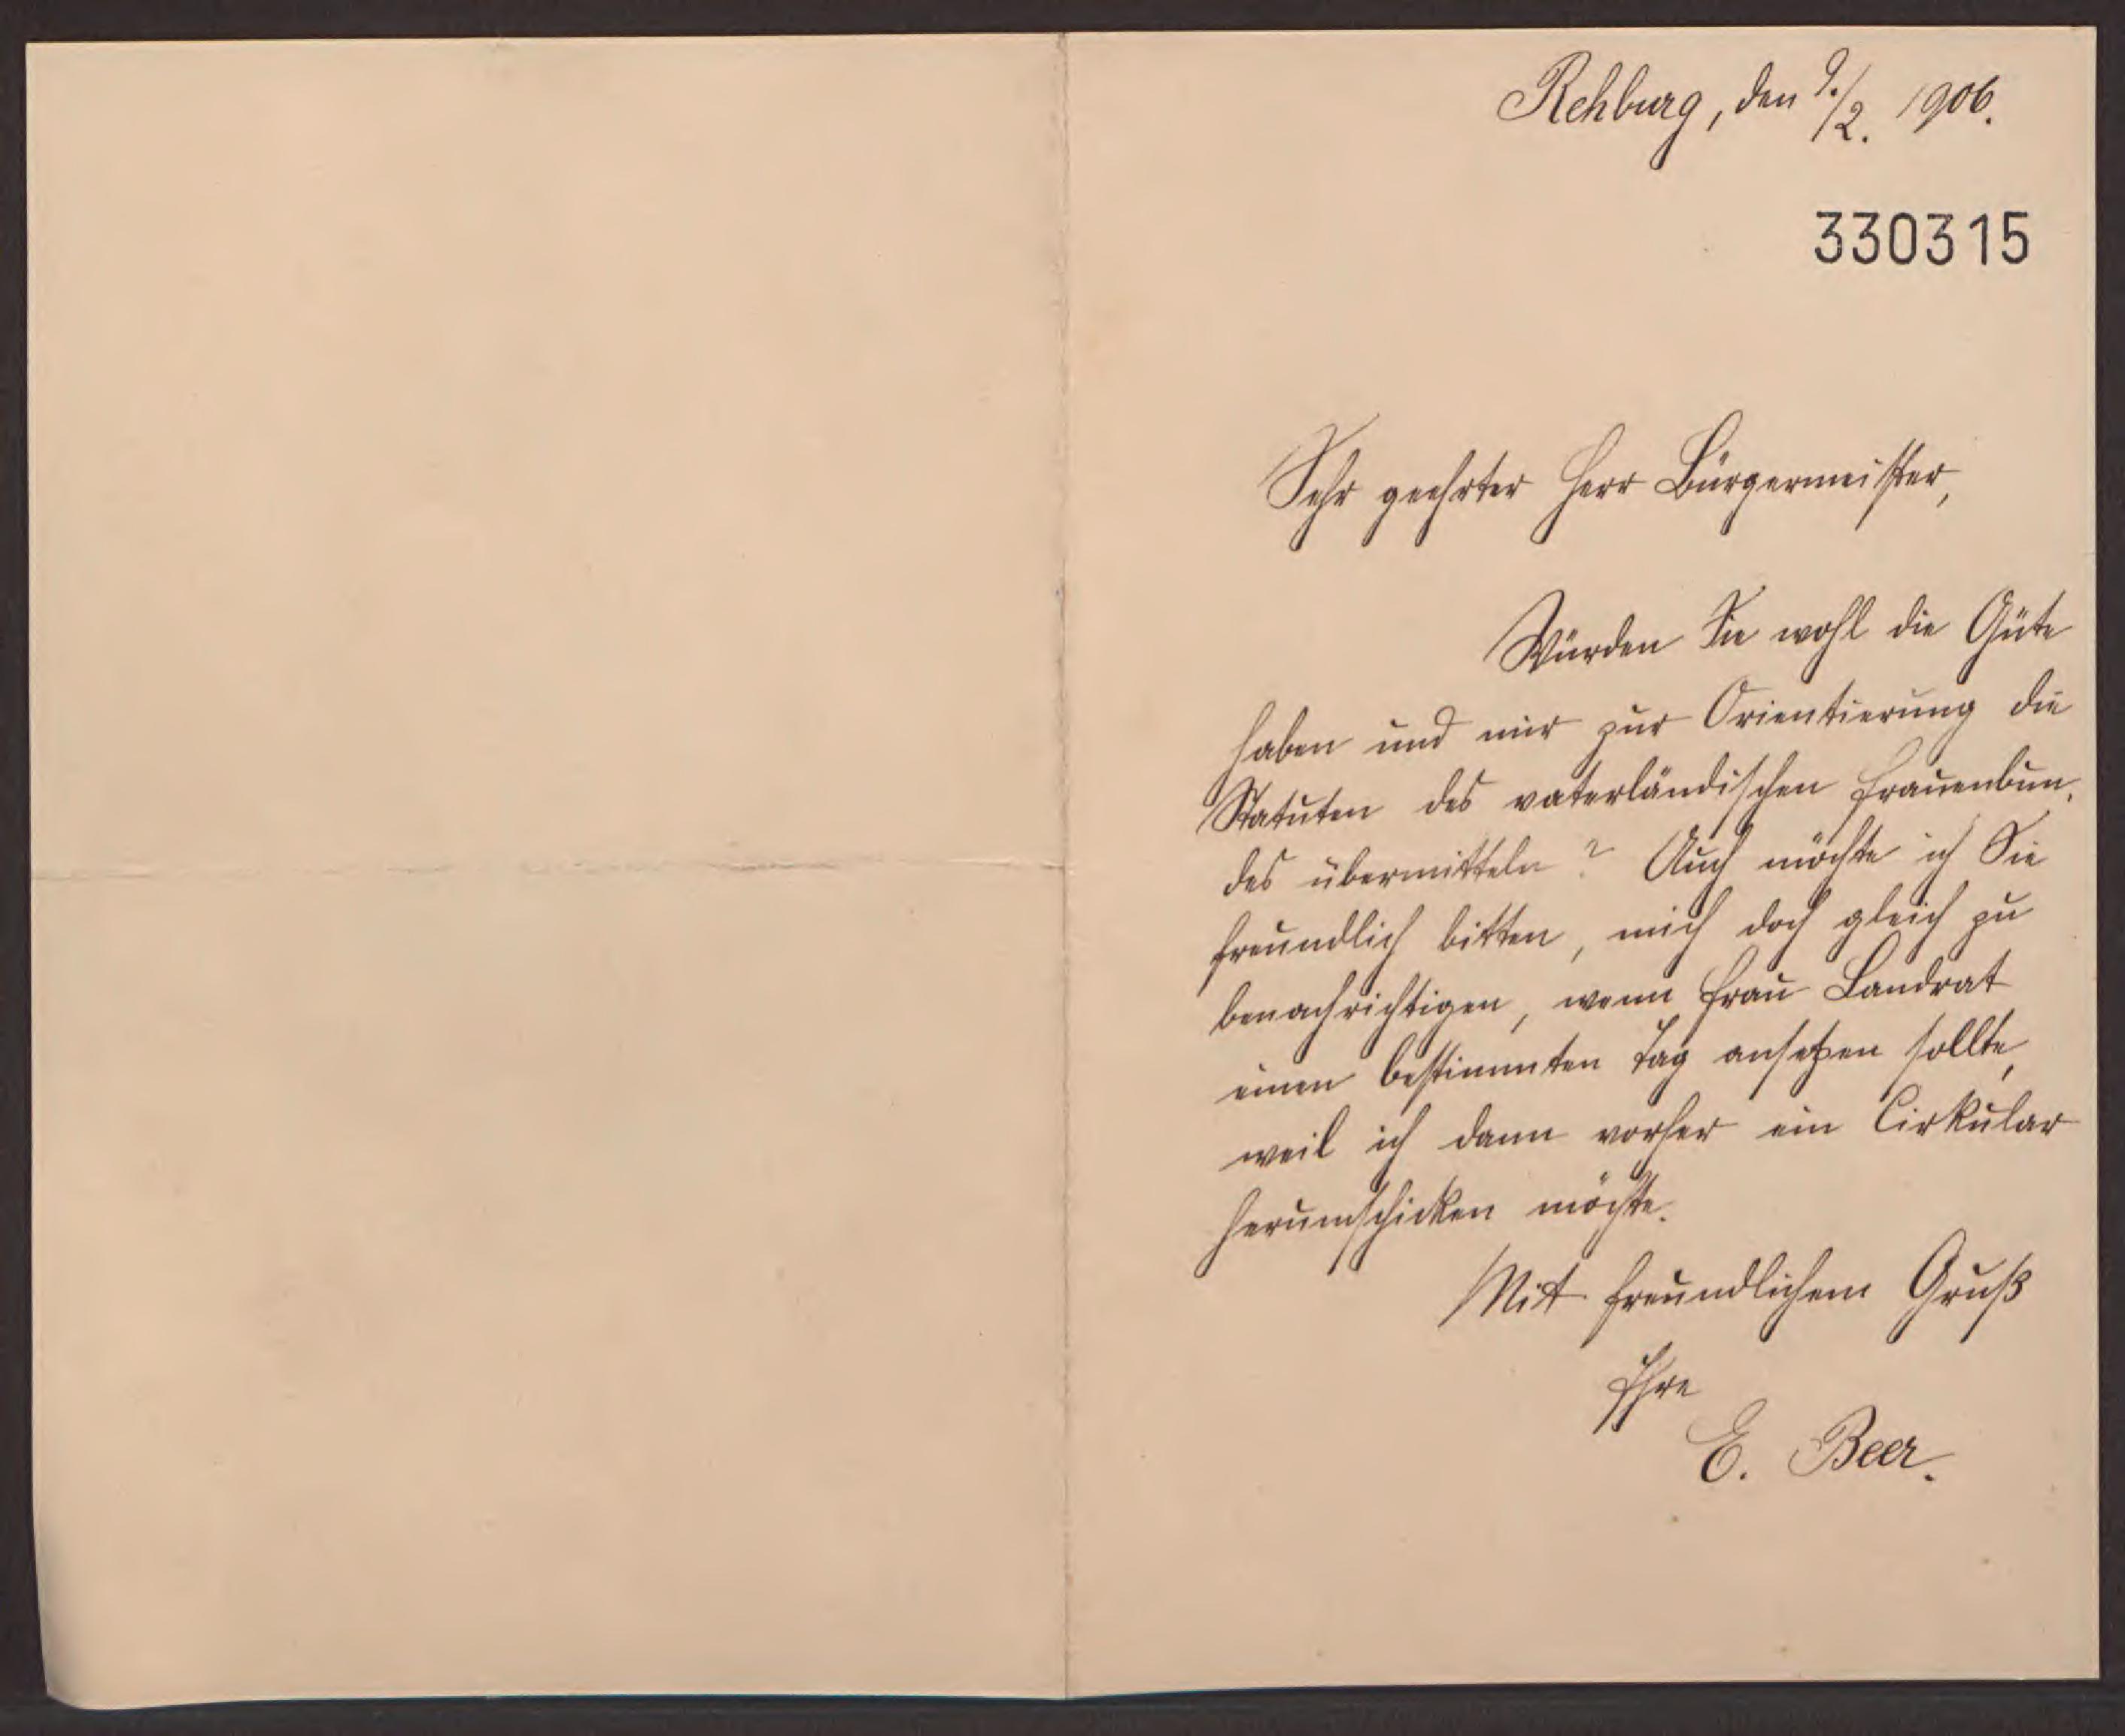 Rehburg, den 9./2. 1906.
330315
Sehr geehrter Herr Bürgermeister,
Würden Sie wohl die Güte
haben und mir zur Orientierung die
Statuten des vaterländischen Frauenbun-
des übermitteln? Auch möchte ich Sie
freundlich bitten, mich doch gleich zu
benachrichtigen, wenn Frau Landrat
einen bestimmten Tag ansetzen sollte,
weil ich dann vorher ein Cirkular
herumschicken möchte.
Mit freundlichem Gruß
Ihre
E. Beer.